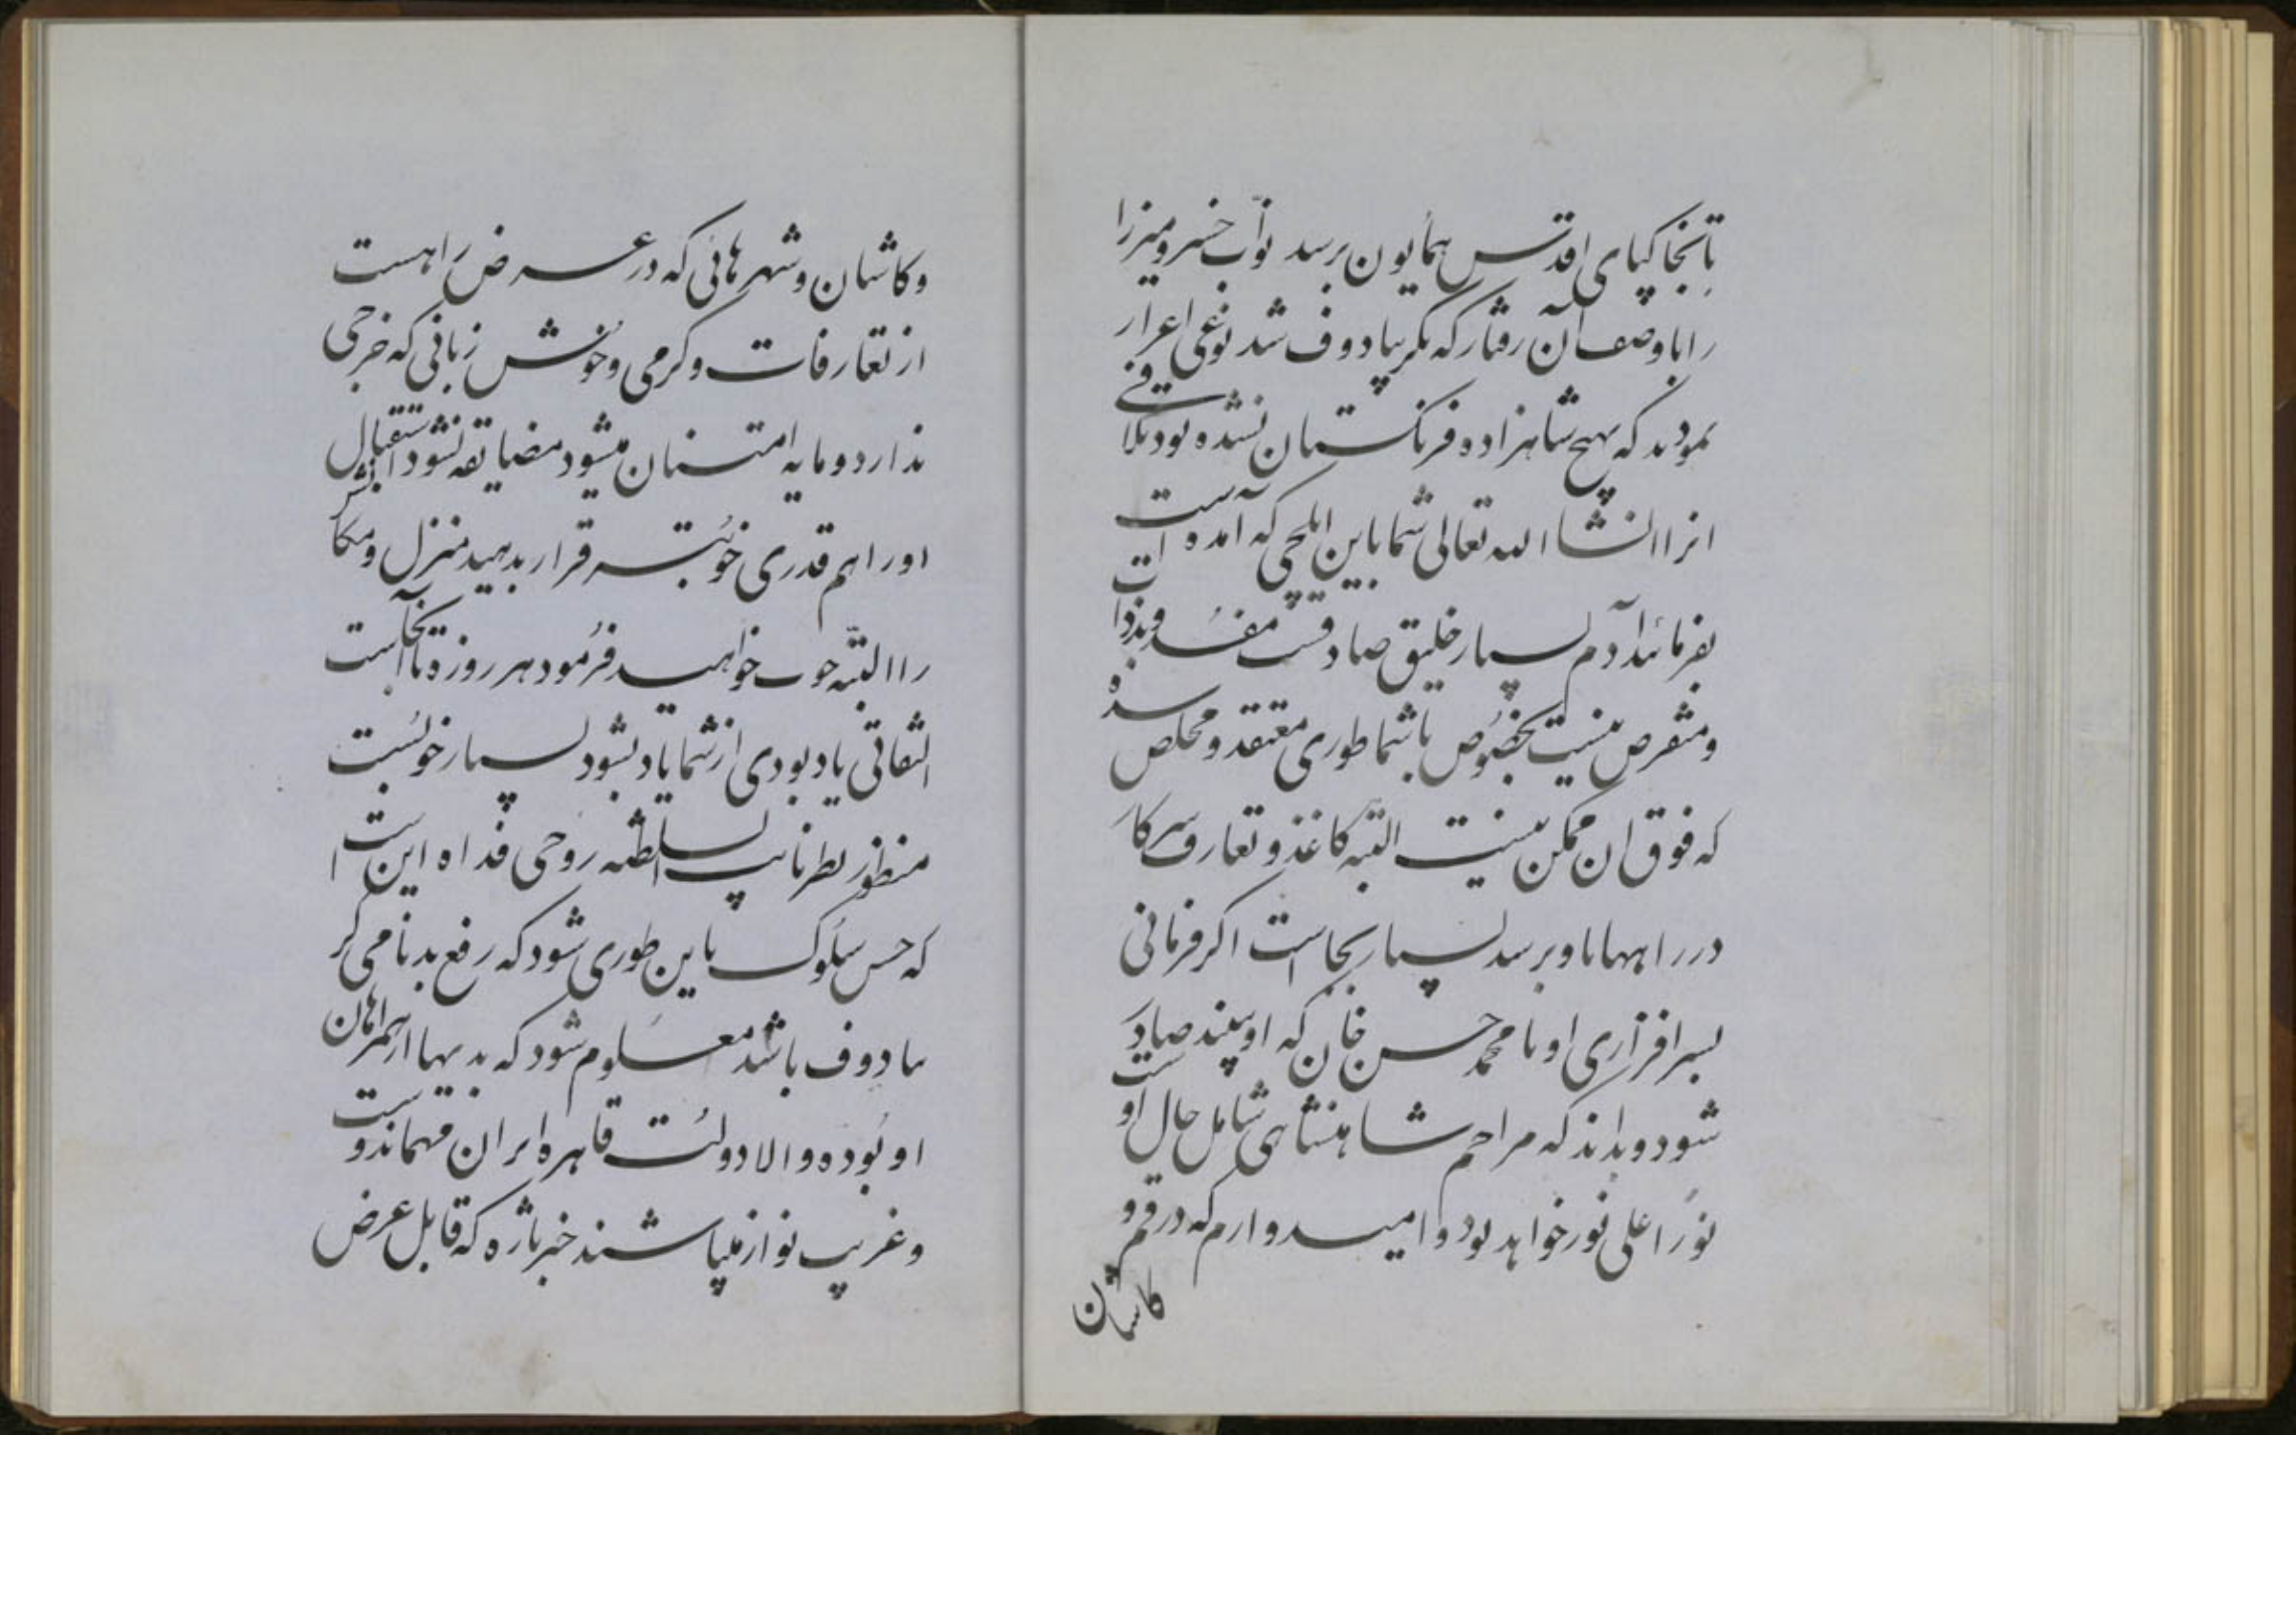 تا بخاکپای اقدس همایون برسد نوّاب خسرو میرزا
را با وصف آن رفتار که بگریبادوف شد نوعی اعزاز
نمودند که بهیچ شاهزاده فرنگستان نشده بود تلافی
انرا انشاالله تعالی شما باین ایلچی که آمده است
بفرمائید آدم بسیار خلیق صادقست مفسد و بدذات
و متفرص نیست بخصوص با شما طوری معتقد و مخلص شده
که فوق ان ممکن نیست البته کاغذ و تعارف سرکار
در راهها باو برسد بسیار بجاست اگر فرمانی
بسرافرازی او با محمد حسن خان که او پسند صادر
شود و بداند که مراحم شاهنشاهی شامل حال اوست
نورا علی نور خواهد بود و امیدوارم که در قم و
کاشان
و کاشان و شهرهائی که در عرض راهست
از تعارفات و گرمی و خوش زبانی که خرجی
ندارد و مایه امتنان میشود مضایقه نشود استقبالش
او را هم قدری خوبتر قرار بدهید منزل و مکان
را البتّه خوب خواهید فرمود هر روزه تا آنجاست
التفاتی یادبودی از شما یاد بشود بسیار خوبست
منظور نظر نایب السلطنه روحی فداه این است
که حسن سلوک باین طوری شود که رفع بدنامی گر
یبادوف باشد معلوم شود که بدیها از همراهان
او بوده و والا دولت قاهره ایران مهماندوست
و غریب نواز میباشند خبر تازه که قابل عرض